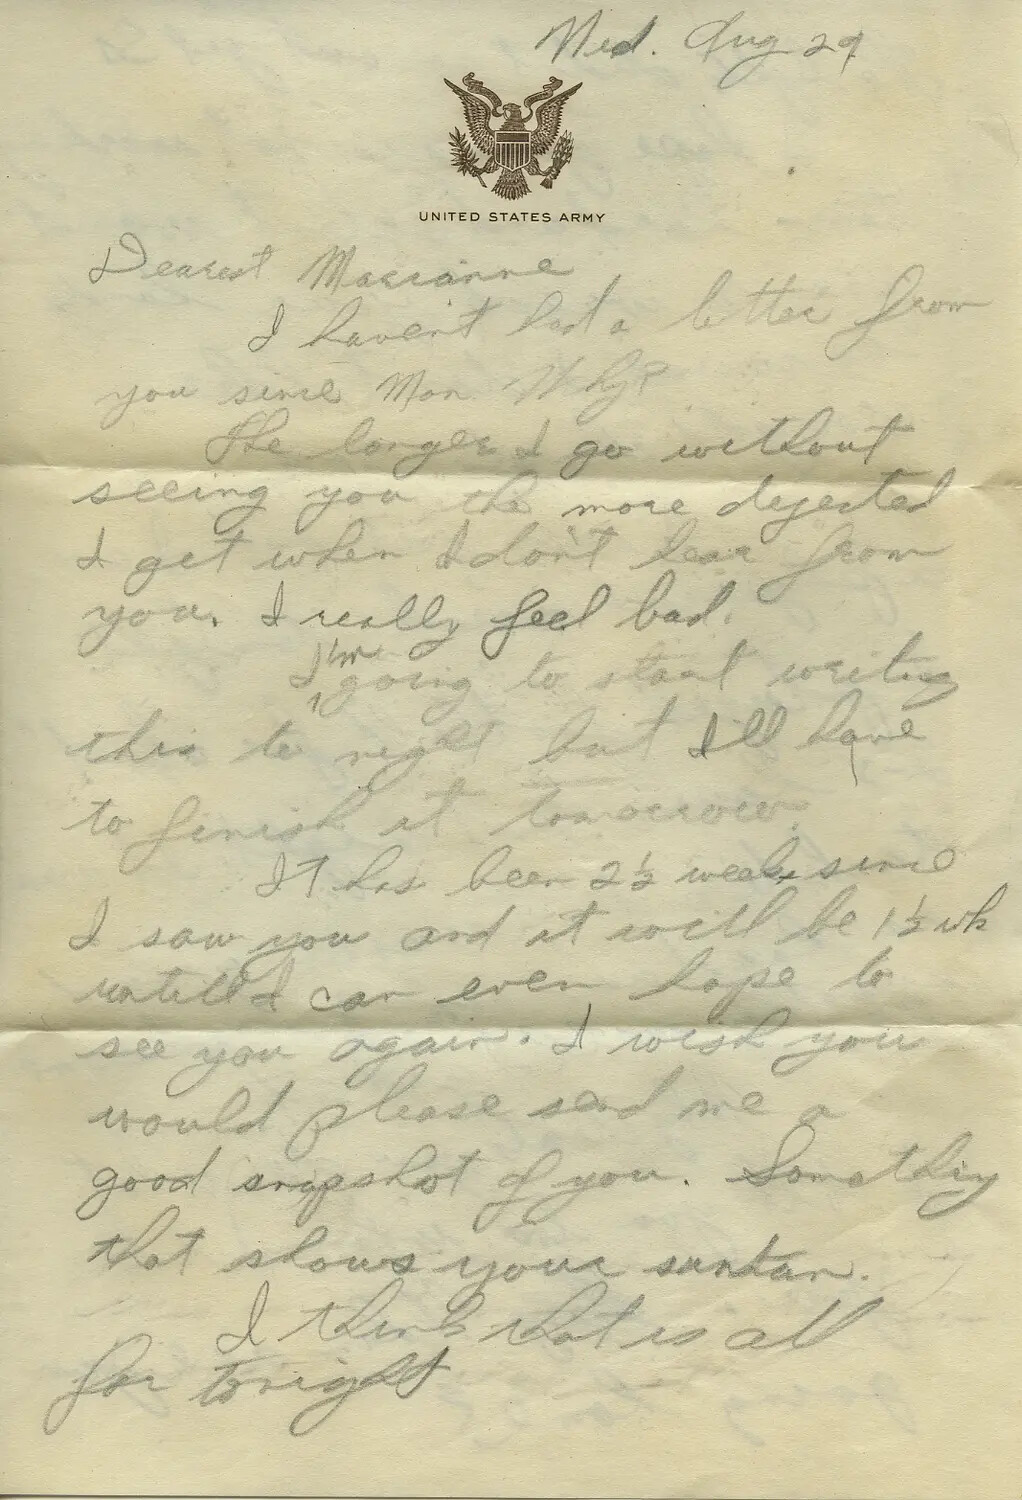 Wed. Aug 29
UNITED STATES ARMY
Dearest Marianne
I haven't had a letter from
you since Mon Why?
The longer I go without
seeing you the more dejected
I get when I don't hear from
you. I really feel bad.
I'm going to start writing
this to night but I'll have
to finish it tomorrow.
It has been 2½ weeks since
I saw you and it will be 1½ wk
until I can even hope to
see you again. I wish you
would please send me a
good snapshot of you. Something
that shows your suntan.
I think that is all
for tonight